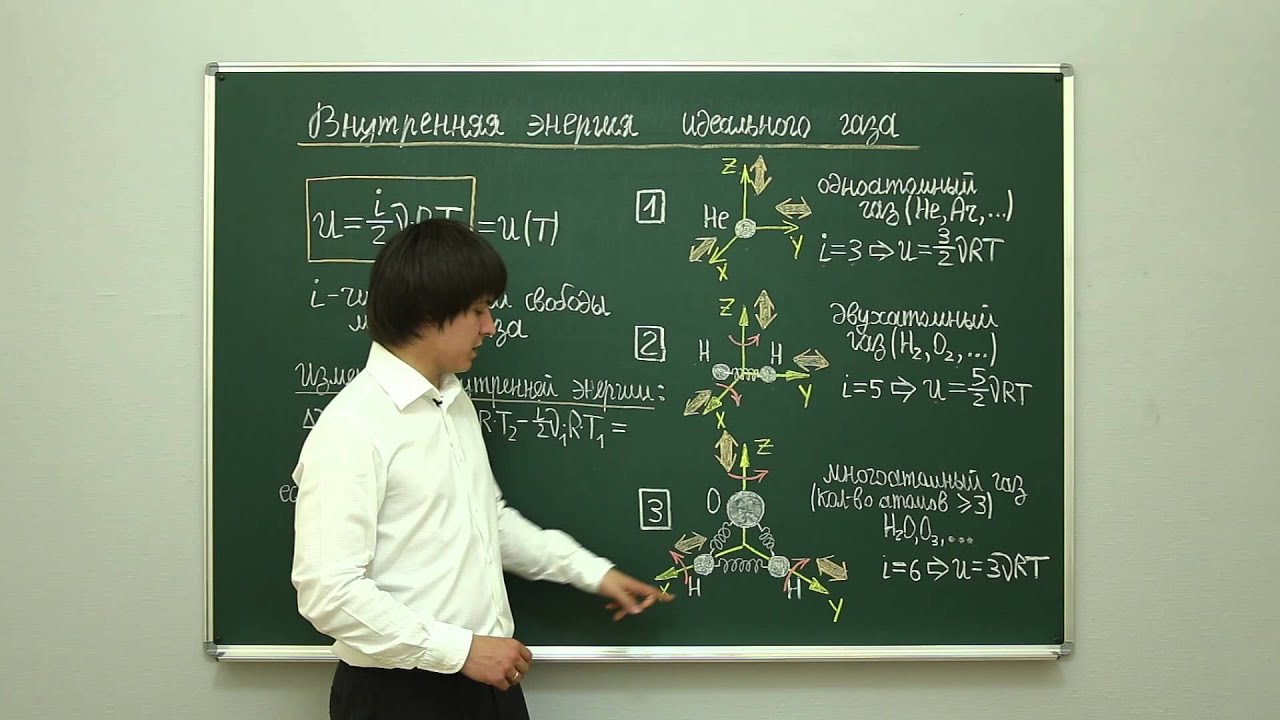 Внутренняя энергия идеального газа
U = i/2 νRT = U(T)
i - свободы
внутренней энергии:
R·T₂ - i/2 ν₁R·T₁ =
1
Z
He
Y
X
одноатомный
газ (He, Ar, ...)
i=3 ⇨ U = 3/2 νRT
2
Z
H
H
Y
X
двухатомный
газ (H₂, O₂, ...)
i=5 ⇨ U = 5/2 νRT
3
Z
O
X
H
H
Y
многоатомный газ
(кол-во атомов ≥3)
H₂O, O₃, ...
i=6 ⇨ U = 3νRT